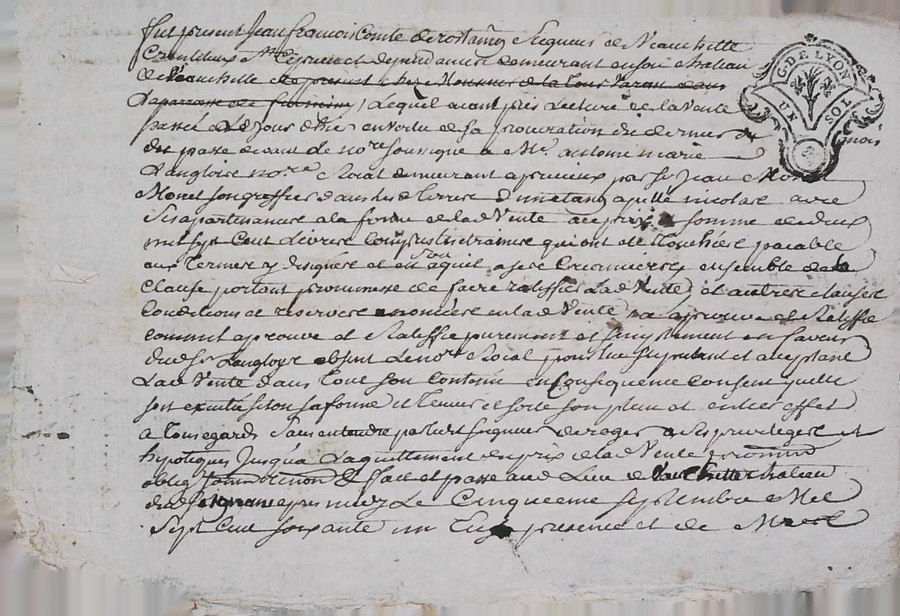 fut present Jean francois Comte de rostaing Seigneur de Veauchette
Craintilleux et dependances demeurant en son chateau
de Veauchette et a present chez Monsieur de la Tour Varan dans
la paroisse de firminy, Lequel ayant pris Lecture de la Vente
passée Le Jour d'hier en vertu de sa procuration du dernier
du passé devant le no.re soussigné a M.e antoine marie
Langloire no.re Roial demeurant a precieux par S.r Jean
Monet son greffier dans les de Terres d'un etang apellé nicolas avec
ses apartenances a la forme de lad Vente au prix et somme de deux
mil sept Cent Livres Compris Les etraines qui ont été Touchées payable
aux Termes y designés et en aquit a ses Creanciers ensemble de la
clause portant promesse de faire ratiffier Lad Vente, et autres clauses
Conditions et reserves enoncées en lad Vente, a aprouvé et Ratiffié
comme il aprouve et Ratiffie purement et simplement en faveur
dud S.r Langloire absent Le no.re Roial pour luy stipulant et aceptant
Lad Vente dans Tout son Contenu en Consequence consent quelle
soit executée selon sa forme et Teneur et sorte son plein et entier effet
a Tous egards Sans entendre par led seigneur deroger a ses privileges et
hypoteques Jusqua Laquittement du prix de lad Vente promis
oblig Soumis renon & fait et passé aud Lieu de Veauchette chateau
dud seigneur apres midy Le Cinquieme Septembre Mil
Sept Cent soixante un en presence de M.re
G. DE LYON
UN SOL
mois